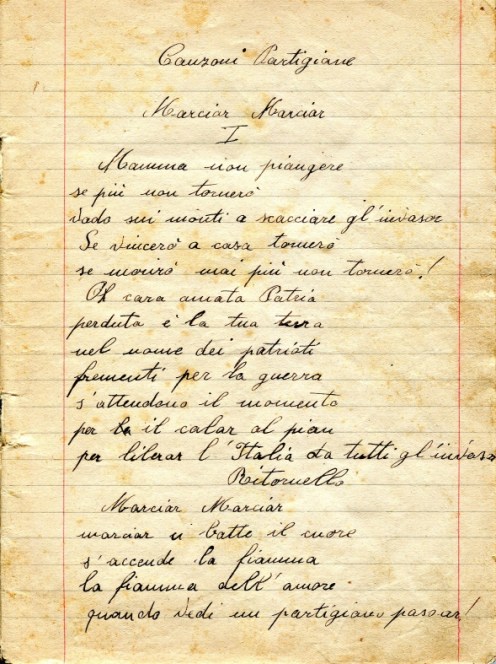 Canzoni Partigiane
Marciar Marciar
I
Mamma non piangere
se più non tornerò
vado sui monti a scacciare gl'invasor
Se vincerò a casa tornerò
se morirò mai più non tornerò!
Oh cara amata Patria
perduta è la tua terra
nel nome dei patrioti
frementi per la guerra
s'attendono il momento
per il calar al pian
per liberar l'Italia da tutti gl'invasor
Ritornello
Marciar Marciar
marciar ci batte il cuore
s'accende la fiamma
la fiamma dell'amore
quando vedi un partigiano passar!